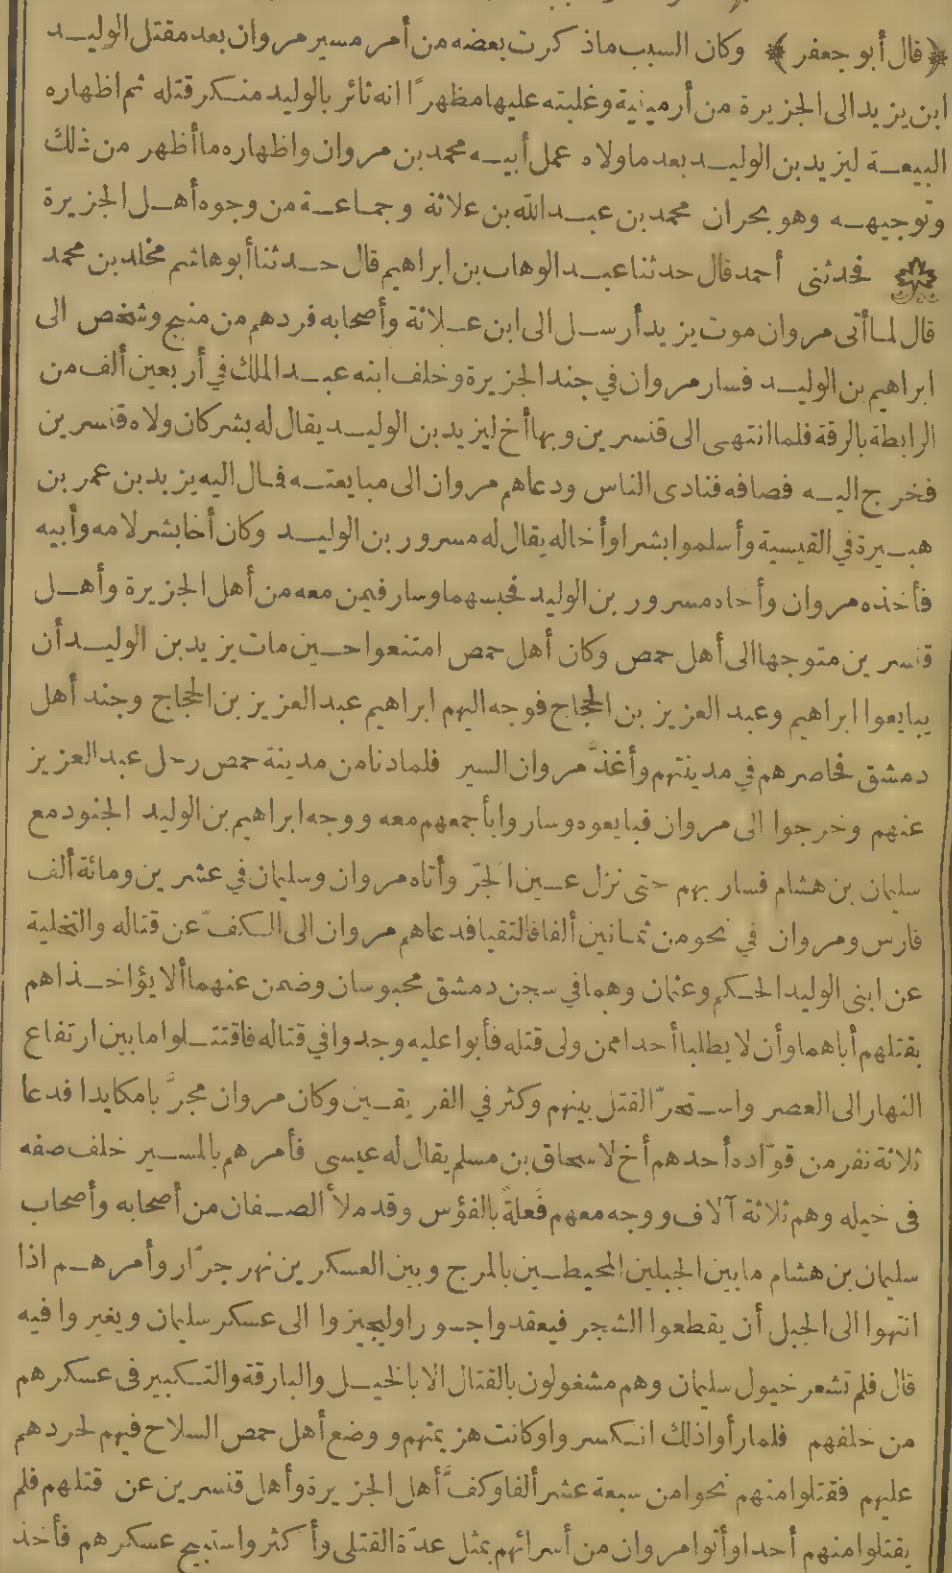 ﴿قال أبو جعفر﴾ وكان السبب ماذكرت بعضه من أمر مسير مروان بعد مقتل الوليد
ابن يزيد الى الجزيرة من أرمينية وغلبته عليها مظهرًا انه ثائر بالوليد منكر قتله ثم اظهاره
البيعة ليزيد بن الوليد بعد ما ولاه عمل أبيه محمد بن مروان واظهاره ما أظهر من ذلك
وتوجيهه وهو بحران محمد بن عبد الله بن علاثة وجماعة من وجوه أهل الجزيرة
فحدثنى أحمد قال حدثنا عبد الوهاب بن ابراهيم قال حدثنا أبو هاشم مخلد بن محمد
قال لما أتى مروان موت يزيد أرسل الى ابن علاثة وأصحابه فردهم من منبج وشخص الى
ابراهيم بن الوليد فسار مروان في جند الجزيرة وخلف ابنه عبد الملك في أربعين ألف من
الرابطة بالرقة فلما انتهى الى قنسرين وبها أخ ليزيد بن الوليد يقال له بشر كان ولاه قنسرين
فخرج اليه فصافه فنادى الناس ودعاهم مروان الى مبايعته فمال اليه يزيد بن عمر بن
هبيرة في القيسية وأسلموا بشرا وأخاله يقال له مسرور بن الوليد وكان أخا بشر لامه وأبيه
فأخذه مروان وأخاه مسرور بن الوليد فحبسهما وسار فيمن معه من أهل الجزيرة وأهل
قنسرين متوجها الى أهل حمص وكان أهل حمص امتنعوا حين مات يزيد بن الوليد أن
يبايعوا ابراهيم وعبد العزيز بن الحجاج فوجه اليهم ابراهيم عبد العزيز بن الحجاج وجند أهل
دمشق فحاصرهم في مدينتهم وأغذَّ مروان السير فلما دنا من مدينة حمص رحل عبد العزيز
عنهم وخرجوا الى مروان فبايعوه وساروا بأجمعهم معه ووجه ابراهيم بن الوليد الجنود مع
سليمان بن هشام فسار بهم حتى نزل عين الجرّ وأتاه مروان وسليمان في عشرين ومائة ألف
فارس ومروان في نحو من ثمانين ألفا فالتقيا فدعاهم مروان الى الكفّ عن قتاله والتخلية
عن ابنى الوليد الحكم وعثمان وهما في سجن دمشق محبوسان وضمن عنهما ألا يؤاخذاهم
بقتلهم أباهما وأن لا يطلبا أحدا ممن ولى قتله فأبوا عليه وجدوا في قتاله فاقتتلوا ما بين ارتفاع
النهار الى العصر واستحرّ القتل بينهم وكثر في الفريقين وكان مروان مجرَّبا مكايدا فدعا
ثلاثة نفر من قوّاده أحدهم أخ لاسحاق بن مسلم يقال له عيسى فأمرهم بالمسير خلف صفه
فى خيله وهم ثلاثة آلاف ووجه معهم فَعَلةً بالفؤس وقد ملأ الصفان من أصحابه وأصحاب
سليمان بن هشام ما بين الجبلين المحيطين بالمرج وبين العسكرين نهر جرّار وأمرهم اذا
انتهوا الى الجبل أن يقطعوا الشجر فيعقدوا جسورا وليجيزوا الى عسكر سليمان ويغيروا فيه
قال فلم تشعر خيول سليمان وهم مشغولون بالقتال الا بالخيل والبارقة والتكبير فى عسكرهم
من خلفهم فلما رأوا ذلك انكسروا وكانت هزيمتهم ووضع أهل حمص السلاح فيهم لحردهم
عليهم فقتلوا منهم نحوا من سبعة عشر ألفا وكفَّ أهل الجزيرة وأهل قنسرين عن قتلهم فلم
يقتلوا منهم أحدا وأتوا مروان من أسرائهم بمثل عدّة القتلى وأكثر واستبيح عسكرهم فأخذ